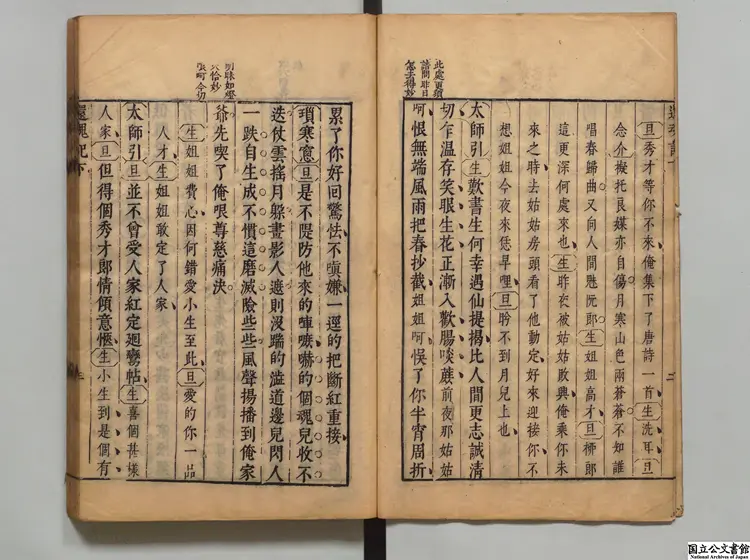 此處更須
請問昨日
怎生得妙
旦秀才等你不來俺集下了唐詩一首生洗耳旦
念介擬托良媒亦自傷月寒山色兩蒼蒼不知誰
唱春歸曲又向人間魅阮郎生姐姐高才旦柳郎
這更深何處來也生昨衣被姑姑敗興俺乘你未
來之時去姑姑房頭看了他動定好來迎接你不
想姐姐今夜來恁早哩旦盼不到月兒上也
太師引生歎書生何幸遇仙提揭比人間更志誠清
切乍温存笑眼生花正漸入歡腸啖蔗前夜那姑姑
呵恨無端風雨把春抄截姐姐呵悞了你半宵周折
累了你好回驚怯不嗔嫌一逕的把斷紅重接
瑣寒窻旦是不隄防他來的啅嗾嚇的個魂兒收不
迭仗雲搖月躱畫影人遮則沒踹的澁道邊兒閃人
一跌自生成不慣這磨滅險些些風聲揚播到俺家
爺先喫了俺哏尊慈痛決
生姐姐費心因何錯愛小生至此旦愛的你一品
人才生姐姐敢定了人家
太師引旦並不曾受人家紅定廻鸞帖生喜個甚樣
人家旦但得個秀才郎情傾意愜生小生到是個有
還魂記下
二
国立公文書館
National Archives of Japan